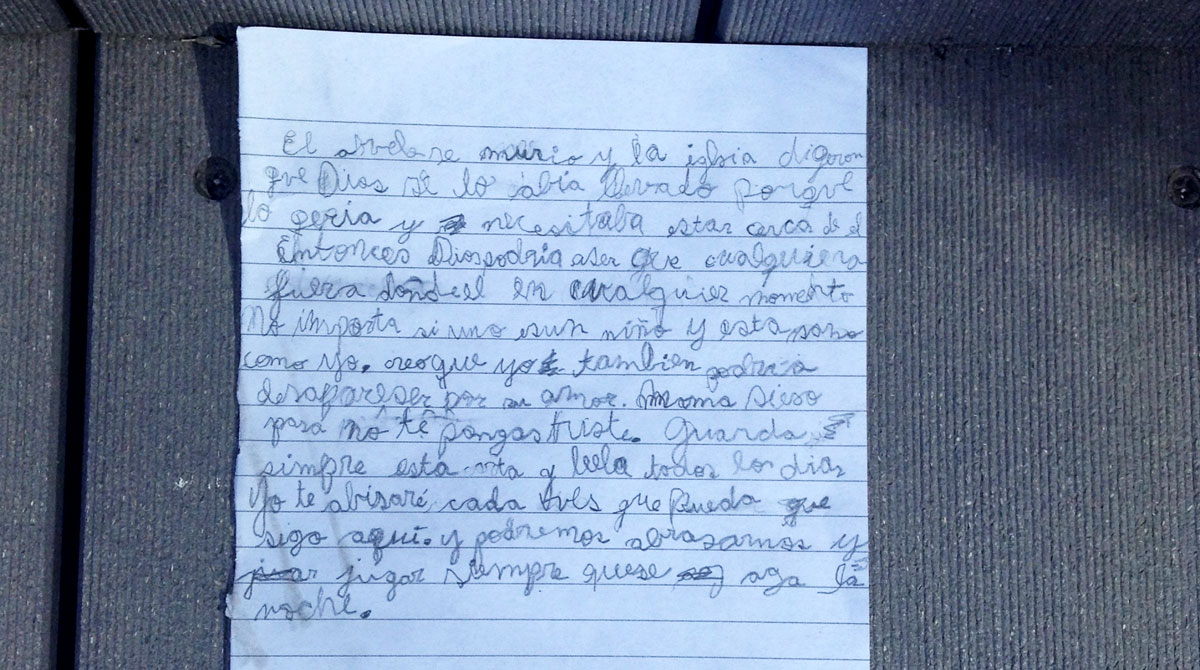 El abuelo se murio y la iglsia digeron
que Dios se lo abia llevado porque
lo qeria y necesitaba estar cerca de el
Entonces Dios podria aser que cualquiera
fuera donde el en cualquier momento
No importa si uno es un niño y esta sano
como yo. creo que yo tambien podria
desapareser por su amor. Mama si eso
pasa no te pongas triste. Guarda
simpre esta carta y leela todos los dias
Yo te abisaré cada ves que pueda que
sigo aquí. y podremos abrasarnos y
jugar siempre que se aga la
noche.